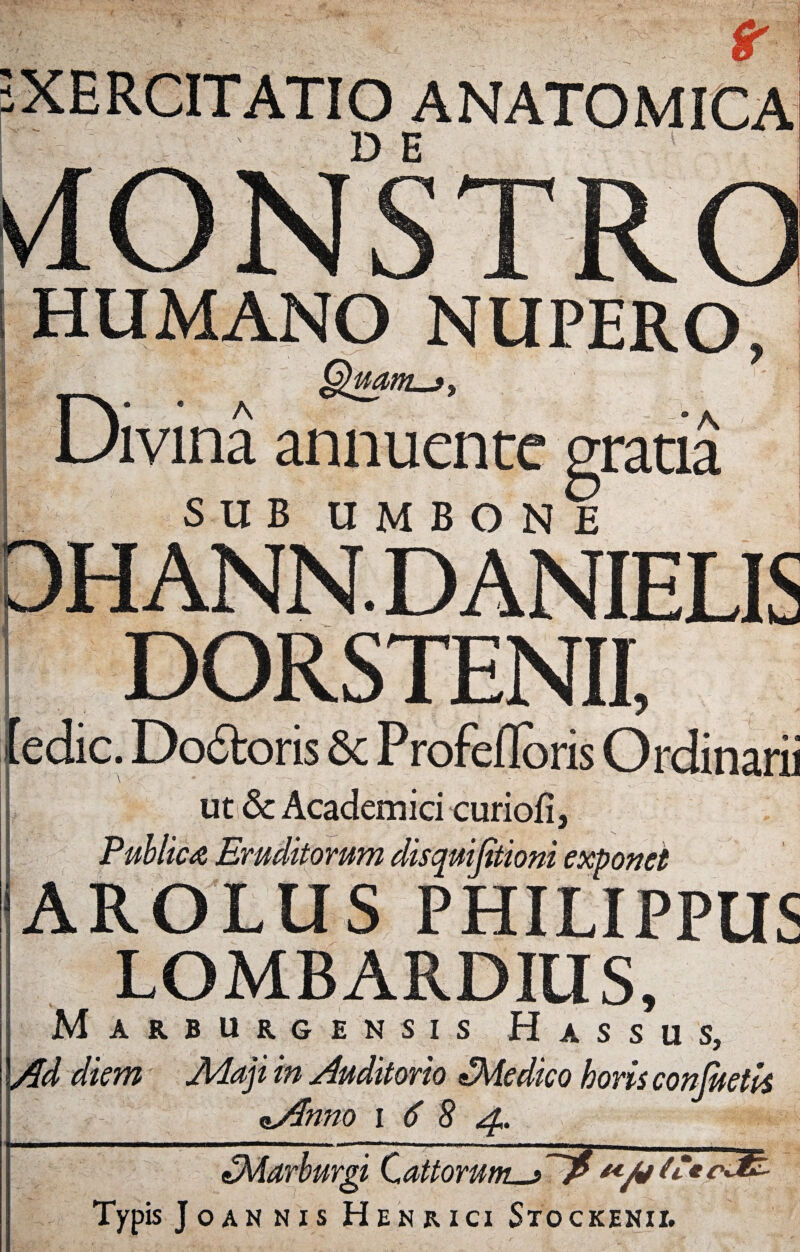 EXERCITATIO ANATOMICA
DE
MONSTRO
HUMANO NUPERO,
Quam,
Divinâ annuente gratiâ
SUB UMBONE
OHANN. DANIELIS
DORSTENII,
edic. Doctoris & Profeſſoris Ordinarii
ut & Academici curioſi,
Publicæ Eruditorum disquiſitioni exponet
AROLUS PHILIPPUS
LOMBARDIUS,
MARBURGENSIS HASSUS,
Ad diem Maji in Auditorio Medico horis conſuetis
Anno 1684.
Marburgi Cattorum,
Typis JOANNIS HENRICI STOCKENII.